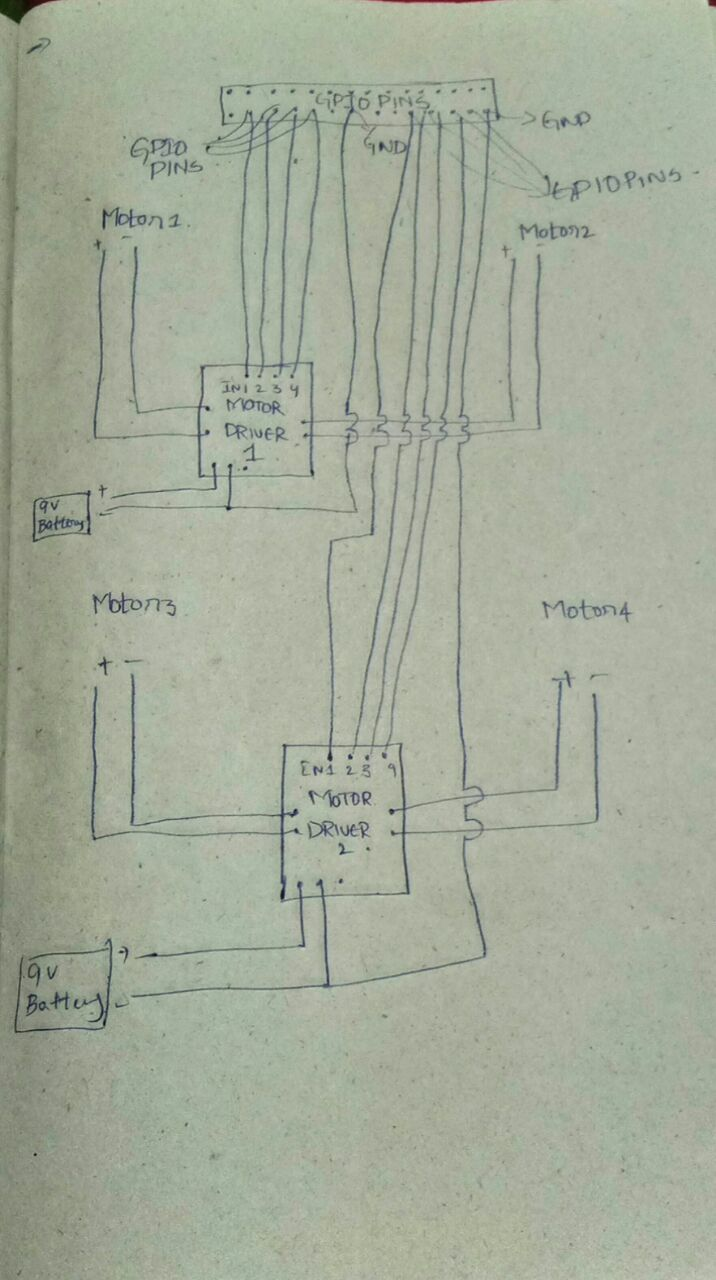 GPIO PINS
GPIO
PINS
GND
GND
GPIOPINS
Motor1
+ -
Motor2
+ -
IN1 2 3 4
MOTOR
DRIVER
1
9V
Battery
+
-
Motor3
+ -
Motor4
+ -
IN1 2 3 4
MOTOR
DRIVER
2
9V
Battery
+
-